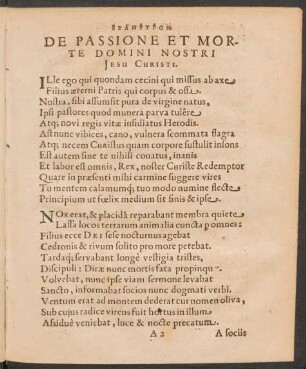 DE PASSIONE ET MOR-
TE DOMINI NOSTRI
JESU CHRISTI.
ILle ego qui quondam cecini qui missus ab axe
Filius æterni Patris qui corpus & ossa
Nostra, sibi assumsit pura de virgine natus,
Ipsi pastores quod munera parva tulêre
Atq; novi regis vitæ insidiatus Herodis.
Ast nunc vibices, cano, vulnera scommata flagra
Atq; necem CHRISTUS quam corpore sustulit insons
Est autem sine te nihili conatus, inanis
Et labor est omnis, Rex, noster Christe Redemptor
Quare in præsenti mihi carmine suggere vires
Tu mentem calamumq; tuo modo numine flecte
Principium ut fœlix medium sit finis & ipse.
NOx erat, & placidâ reparabant membra quiete
Lassa locos terrarum animalia cuncta p omnes:
Filius ecce DEI sese nocturnus agebat
Cedronis & rivum solito pro more petebat.
Tardaq; servabant longè vestigia tristes,
Discipuli: Diræ nunc mortis fata propinquæ
Volvebat, nunc ipse viam sermone levabat
Sancto, informabat socios nunc dogmati verbi.
Ventum erat ad montem dederat cui nomen oliva,
Sub cujus radice virens fuit hortus in illum
Assiduè veniebat, luce & nocte precatum.
A 2 A sociis